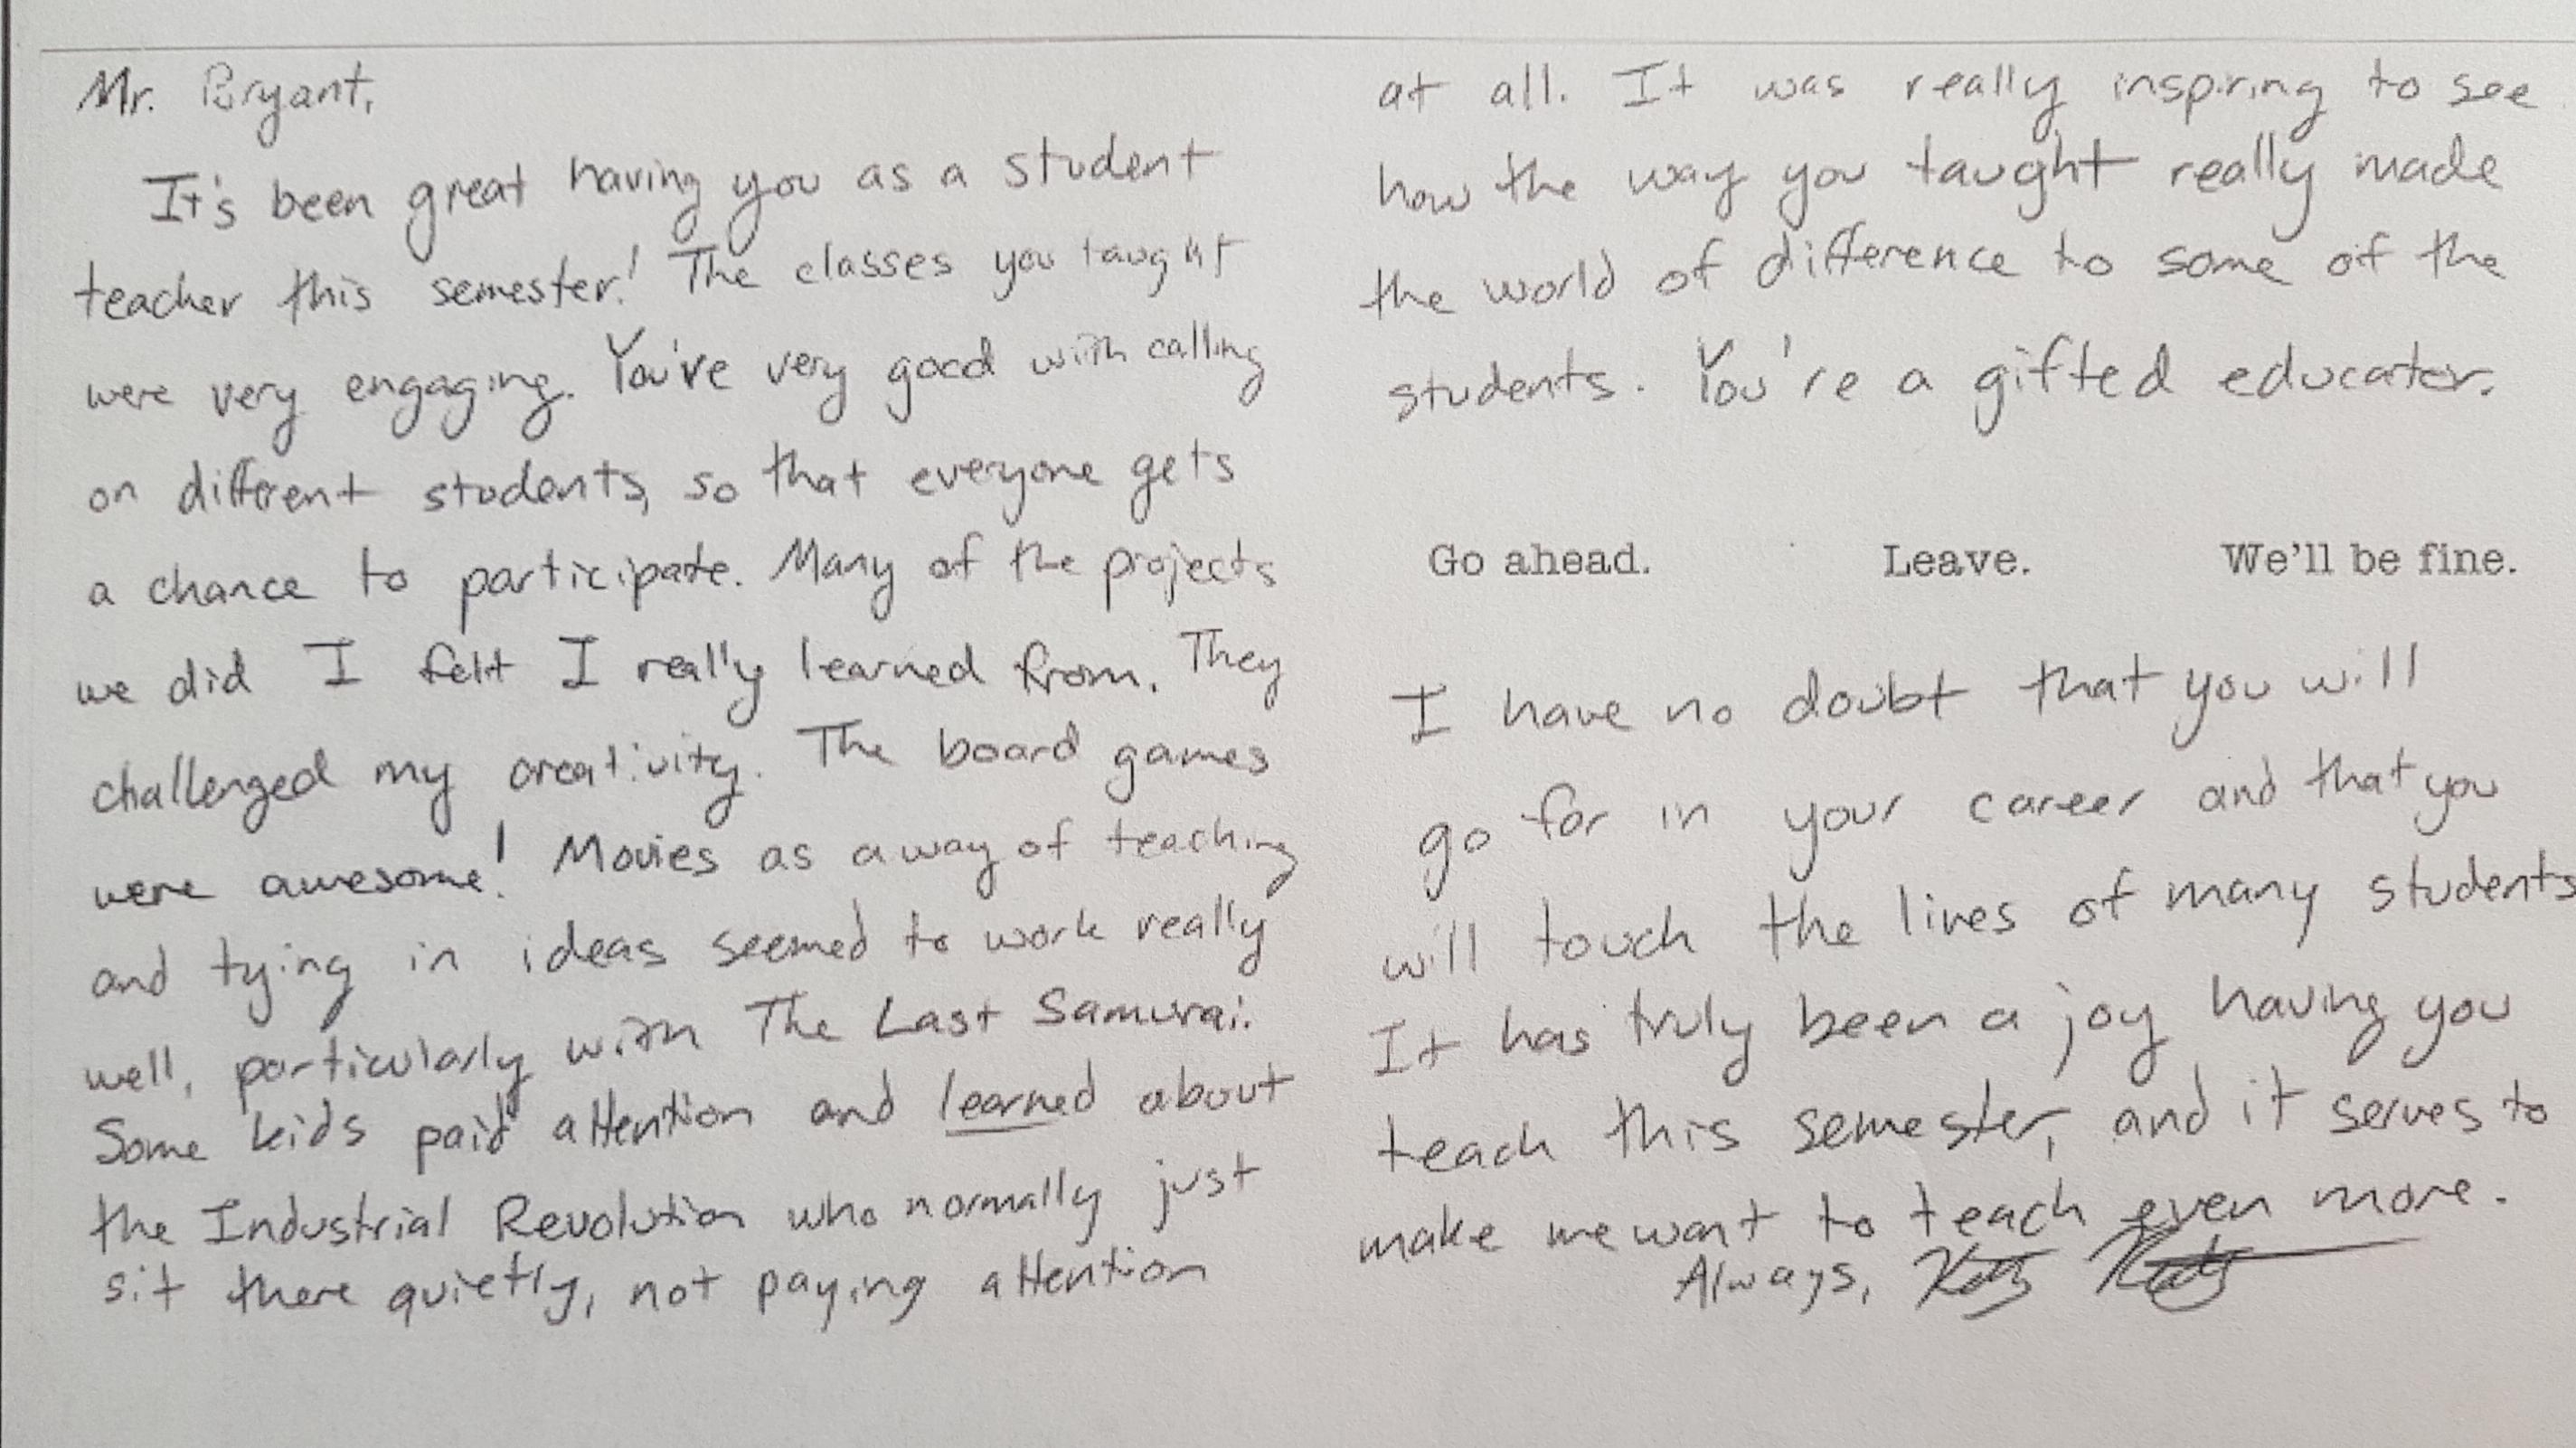 Mr. Bryant,
It's been great having you as a student
teacher this semester! The classes you taught
were very engaging. You're very good with calling
on different students, so that everyone gets
a chance to participate. Many of the projects
we did I felt I really learned from. They
challenged my creativity. The board games
were awesome! Movies as a way of teaching
and tying in ideas seemed to work really
well, particularly with The Last Samurai.
Some kids paid attention and learned about
the Industrial Revolution who normally just
sit there quietly, not paying attention
at all. It was really inspiring to see
how the way you taught really made
the world of difference to some of the
students. You're a gifted educator.
Go ahead. Leave. We'll be fine.
I have no doubt that you will
go far in your career and that you
will touch the lives of many students
It has truly been a joy having you
teach this semester, and it serves to
make me want to teach even more.
Always,